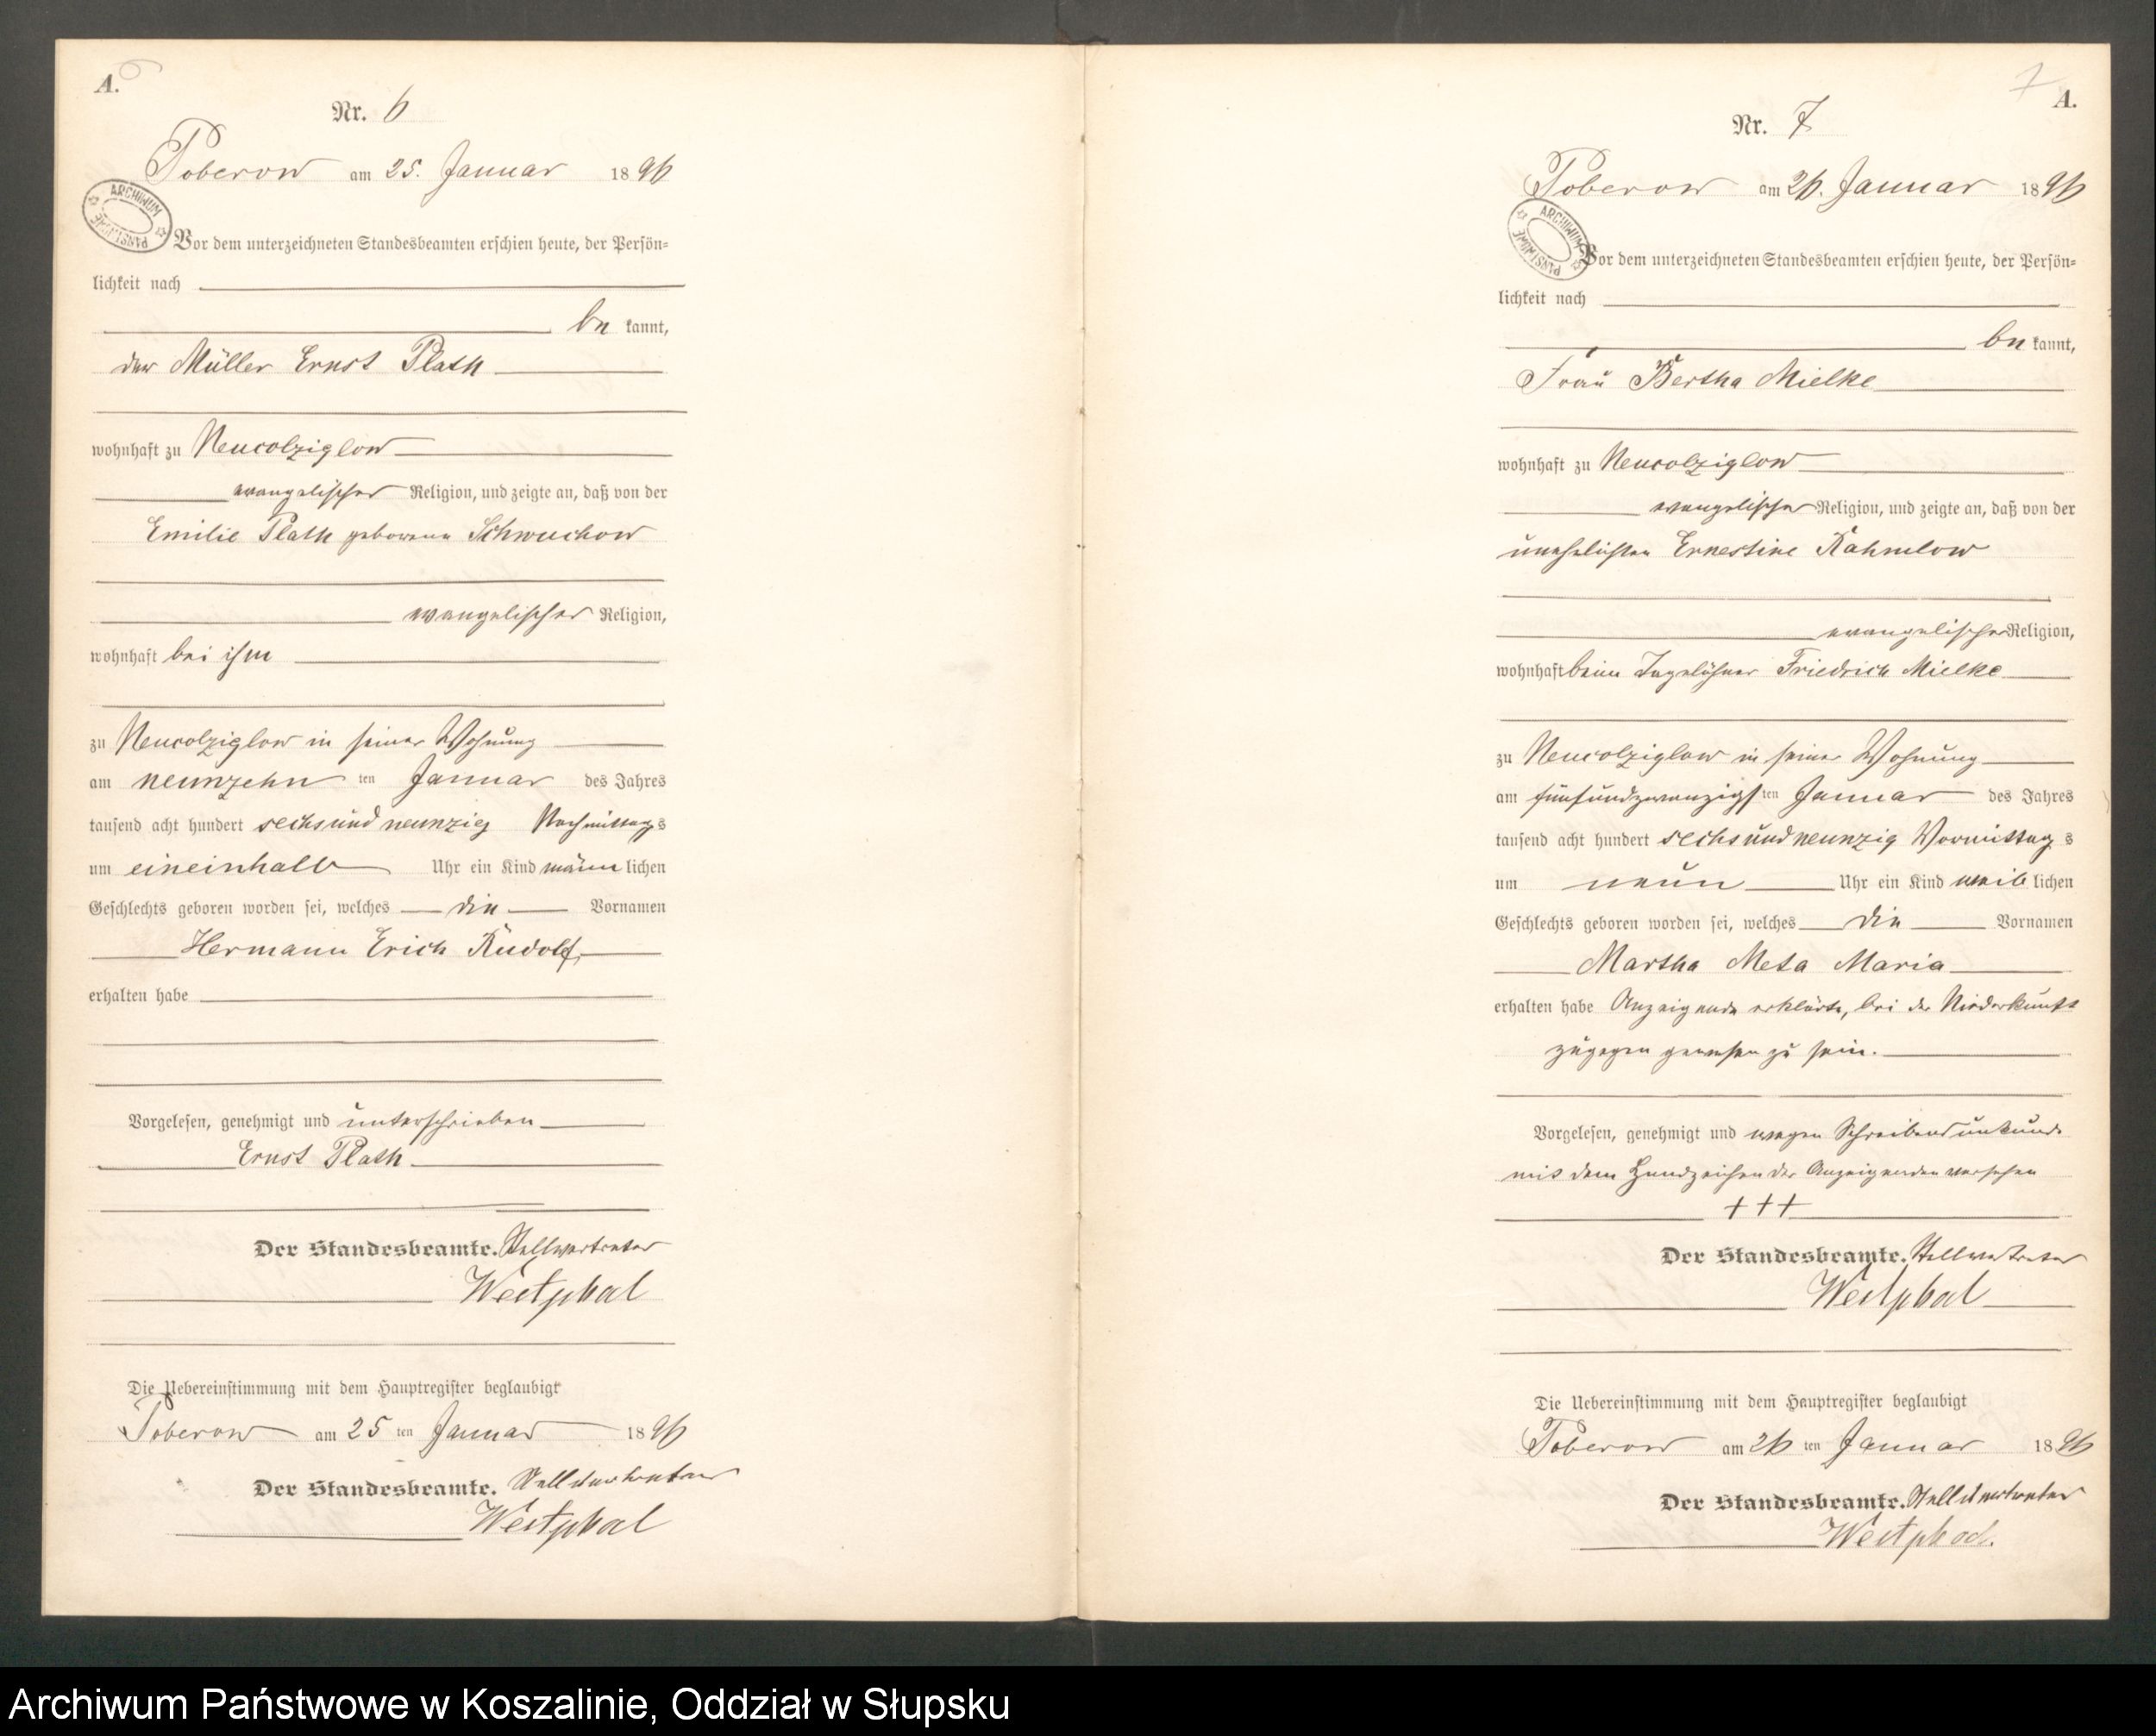 A.
Nr. 6
Poberow am 25. Januar 1896
ARCHIWUM PAŃSTWOWE
Vor dem unterzeichneten Standesbeamten erschien heute, der Persön=
lichkeit nach
be kannt,
der Müller Ernst Plath
wohnhaft zu Neucolziglow
evangelischer Religion, und zeigte an, daß von der
Emilie Plath geborene Schwuchow
evangelischer Religion,
wohnhaft bei ihm
zu Neucolziglow in seiner Wohnung
am neunzehn ten Januar des Jahres
tausend acht hundert sechsundneunzig Nachmittags
um eineinhalb Uhr ein Kind männlichen
Geschlechts geboren worden sei, welches die Vornamen
Hermann Erich Rudolf,
erhalten habe
Vorgelesen, genehmigt und unterschrieben
Ernst Plath
Der Standesbeamte. Stellvertreter
Westphal
Die Uebereinstimmung mit dem Hauptregister beglaubigt
Poberow am 25 ten Januar 1896
Der Standesbeamte. Stellvertreter
Westphal
7
A.
Nr. 7
Poberow am 26. Januar 1896
ARCHIWUM PAŃSTWOWE
Vor dem unterzeichneten Standesbeamten erschien heute, der Persön=
lichkeit nach
be kannt,
Frau Bertha Mielke
wohnhaft zu Neucolziglow
evangelischer Religion, und zeigte an, daß von der
unehelichten Ernestine Rahmlow
evangelischer Religion,
wohnhaft beim Tagelöhner Friedrich Mielke
zu Neucolziglow in seiner Wohnung
am fünfundzwanzigsten Januar des Jahres
tausend acht hundert sechsundneunzig Vormittags
um neun Uhr ein Kind weiblichen
Geschlechts geboren worden sei, welches die Vornamen
Martha Meta Maria
erhalten habe Anzeigende erklärte, bei der Niederkunft
zugegen gewesen zu sein.
Vorgelesen, genehmigt und wegen Schreibensunkunde
mit dem Handzeichen der Anzeigenden versehen
+++
Der Standesbeamte. Stellvertreter
Westphal
Die Uebereinstimmung mit dem Hauptregister beglaubigt
Poberow am 26 ten Januar 1896
Der Standesbeamte. Stellvertreter
Westphal.
Archiwum Państwowe w Koszalinie, Oddział w Słupsku